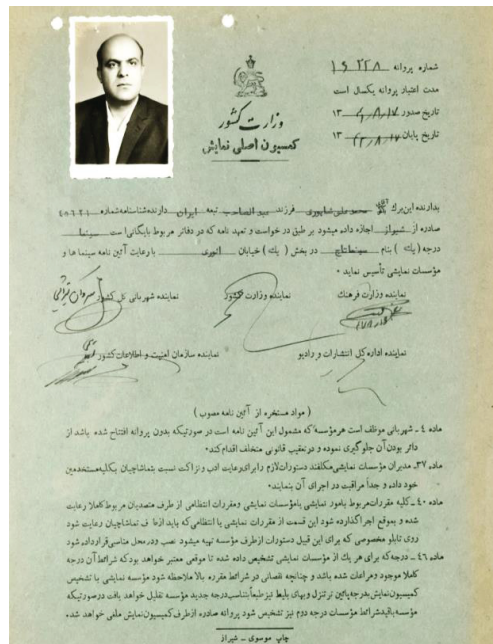 شماره پروانه ۱۶۲۲۸
مدت اعتبار پروانه یکسال است
تاریخ صدور ۱۳
تاریخ پایان ۱۳
وزارت کشور
کمسیون اصلی نمایش
بدارنده این برگ آقای محمدعلی شاپوری فرزند عبدالصاحب تبعه ایران دارنده شناسنامه شماره ۴۵۶۲۱
صادره از شیراز اجازه داده میشود بر طبق درخواست و تعهد نامه که در دفاتر مربوط بایگانی است سینما
درجه (یك) بنام سینما تاج در بخش (یك) خیابان انوری با رعایت آئین نامه سینما ها و
مؤسسات نمایشی تأسیس نماید.
نماینده وزارت فرهنك نماینده وزارت کشور نماینده شهربانی کل کشور
نماینده اداره کل انتشارات و رادیو نماینده سازمان امنیت و اطلاعات کشور
(مواد مستخرجه از آئین نامه مصوب)
ماده ۴ ـ شهربانی موظف است هر مؤسسه‌که مشمول این آئین نامه است در صورتیکه بدون پروانه افتتاح شده باشد از
دائر بودن آن جلوگیری نموده و در تعقیب قانونی متخلف اقدام کند.
ماده ۳۷ـ مدیران مؤسسات نمایشی مکلفند دستورات لازم را برای رعایت ادب و نزاکت نسبت بتماشاچیان بکلیه مستخدمین
خود داده و جداً مراقبت در اجرای آن بنمایند.
ماده ۴۰ـ کلیه مقررات مربوط بامور نمایشی یا مؤسسات نمایشی و مقررات انتظامی از طرف متصدیان مربوط کاملا رعایت
شده و بموقع اجرا گذارده شود این قسمت از مقررات نمایشی یا انتظامی که باید از طرف تماشاچیان رعایت شود
روی تابلو مخصوصی که برای این قبیل دستورات از طرف مؤسسه تهیه میشود نصب و در محل مناسبی قرار داده شود
ماده ۴۶ـ درجه‌که برای هر یك از مؤسسات نمایشی تشخیص داده شده تا موقعی معتبر خواهد بود که شرائط آن درجه
کاملا موجود و مراعات شده باشد و چنانچه نقصانی در شرائط مقرره بالا ملاحظه شود مؤسسه نمایشی با تشخیص
کمیسیون نمایش بدرجه پائین تر تنزل و بهای بلیط نیز طبعاً بتناسب درجه جدید مؤسسه تقلیل خواهد یافت در صورتیکه
مؤسسه فاقد شرائط مؤسسات درجه دوم نیز تشخیص شود پروانه صادره از طرف کمسیون نمایش ملغی خواهد شد.
چاپ موسوی ـ شیراز